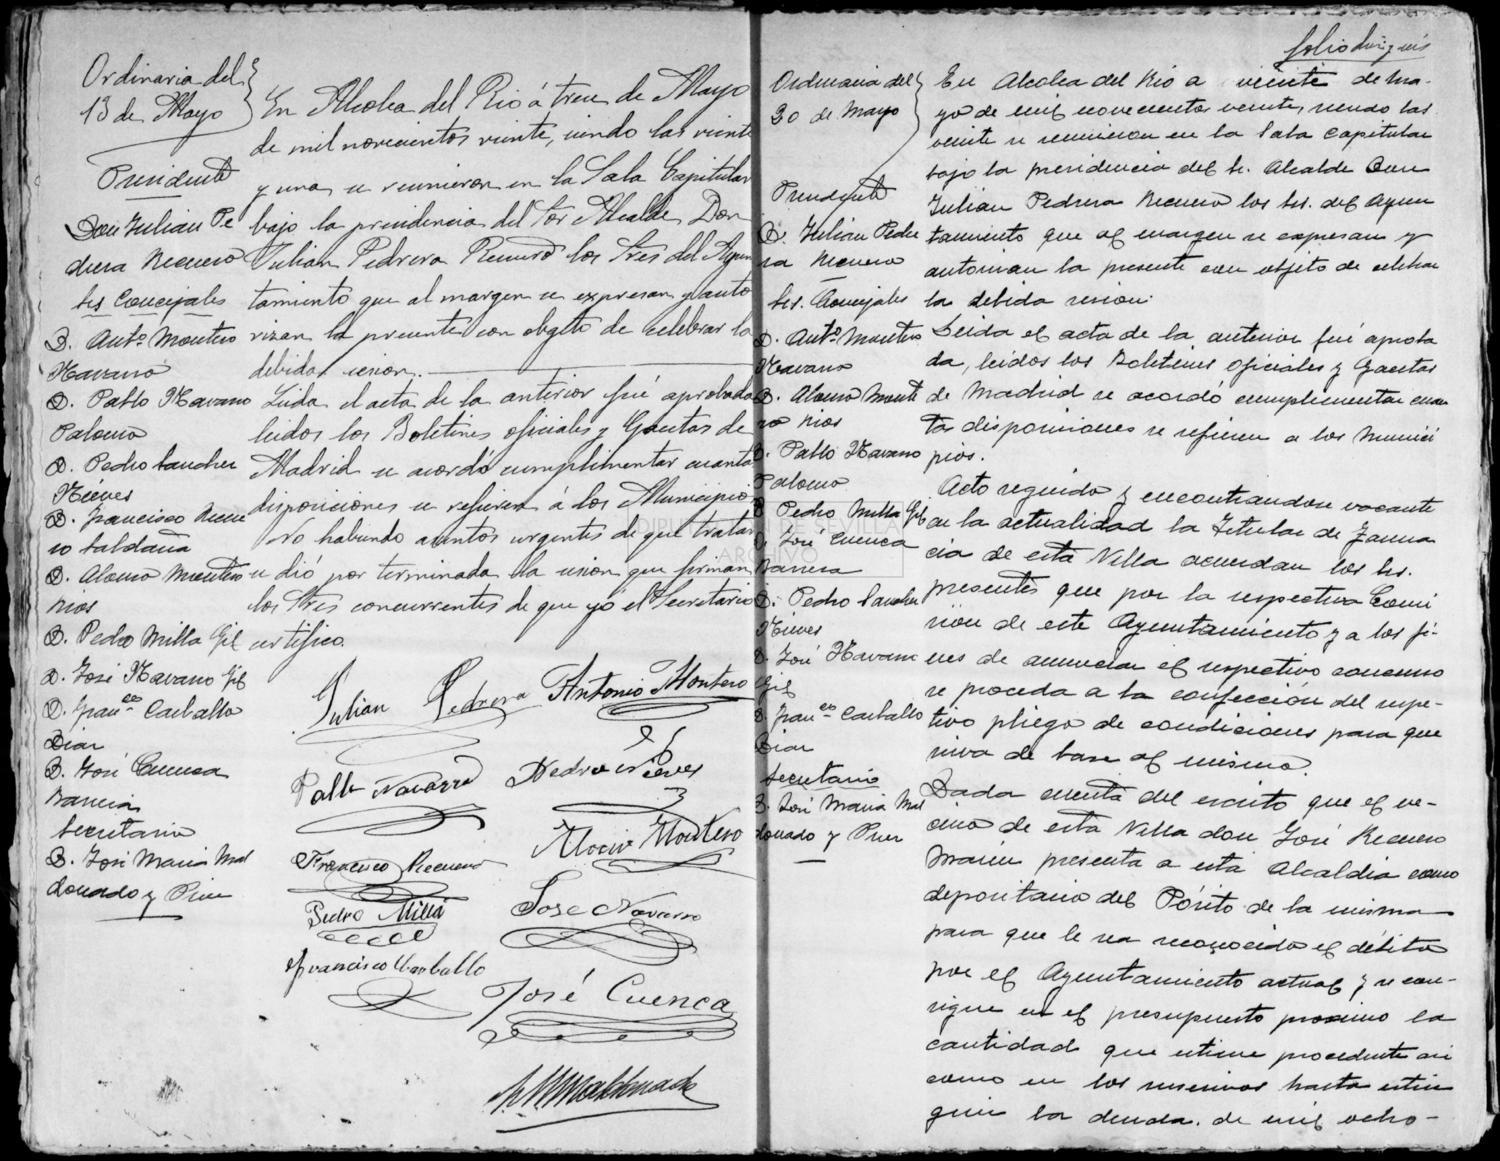 Ordinaria del
13 de Mayo
Presidente
Don Julian Pe
drera Recuero
Srs. Concejales
D. Antº Montero
Navarro
D. Pablo Navarro
Palomo
D. Pedro Sanchez
Nieves
D. Francisco Recue
ro Saldaña
D. Alonso Montero
Rios
D. Pedro Milla Gil
D. José Navarro Gil
D. Franco Carballo
Diaz
D. José Cuenca
Barrera
Secretario
D. José Maria Mal
donado y
En Alcolea del Rio á trece de Mayo
de mil novecientos veinte, siendo las veinte
y una se reunieron en la Sala Capitular
bajo la presidencia del Sor Alcalde Don
Julian Pedrera Recuero los Sres del Ayun
tamiento que al margen se expresan y auto
rizan la presente con objeto de celebrar la
debida sesion.
Leida el acta de la anterior fué aprobada
leidos los Boletines oficiales y Gacetas de
Madrid se acordó cumplimentar cuanta
disposiciones se refieren á los Municipio
No habiendo asuntos urgentes de que tratar
se dió por terminada la sesion que firman
los Sres concurrentes de que yó el Secretario
certifico.
Julian Pedrera Antonio Montero
Pablo Navarro Pedro S Nieves
Francisco Recuero Montero
Pedro Milla Jose Navarro
Francisco Carballo
José Cuenca
Maldonado
folio
Ordinaria del
20 de Mayo
Presidente
D. Julian Pedre
ra Recuero
Srs. Concejales
D. Antº Montero
Navarro
D. Alonso Monte
ro Rios
D. Pablo Navarro
Palomo
D Pedro Milla Gil
D. José Cuenca
Barrera
D. Pedro Sanchez
Nieves
D. José Navarro
Gil
D. Franco Carballo
Diaz
Secretario
D. José Maria Mal
donado y
En Alcolea del Rio a veinte de Ma-
yo de mil novecientos veinte, siendo las
veinte se reunieron en la Sala Capitular
bajo la presidencia del Sr. Alcalde Don
Julian Pedrera Recuero los Srs. del Ayun
tamiento que al margen se expresan y
autorizan la presente con objeto de celebrar
la debida sesion.
Leida el acta de la anterior fué aproba
da, leidos los Boletines oficiales y Gacetas
de Madrid se acordó cumplimentar cuan
tas disposiciones se refieren a los Munici
pios.
Acto seguido y encontrandose vacante
en la actualidad la Titular de Farma
cia de esta Villa acuerdan los Srs.
presentes que por la respectiva Comi
sion de este Ayuntamiento y a los fi-
nes de anunciar el respectivo concurso
se proceda a la confección del respe-
tivo pliego de condiciones para que
sirva de base al mismo.
Dada cuenta del escrito que el ve-
cino de esta Villa don José Recuero
Marin presenta a esta Alcaldia como
depositario del Pósito de la misma
para que le sea reconocido el débito
por el Ayuntamiento actual y se con-
signe en el presupuesto proximo la
cantidad que estime procedente asi
como en los sucesivos hasta extin
guir la deuda de mil ocho-
DIPUTACIÓN DE SEVILLA
ARCHIVO